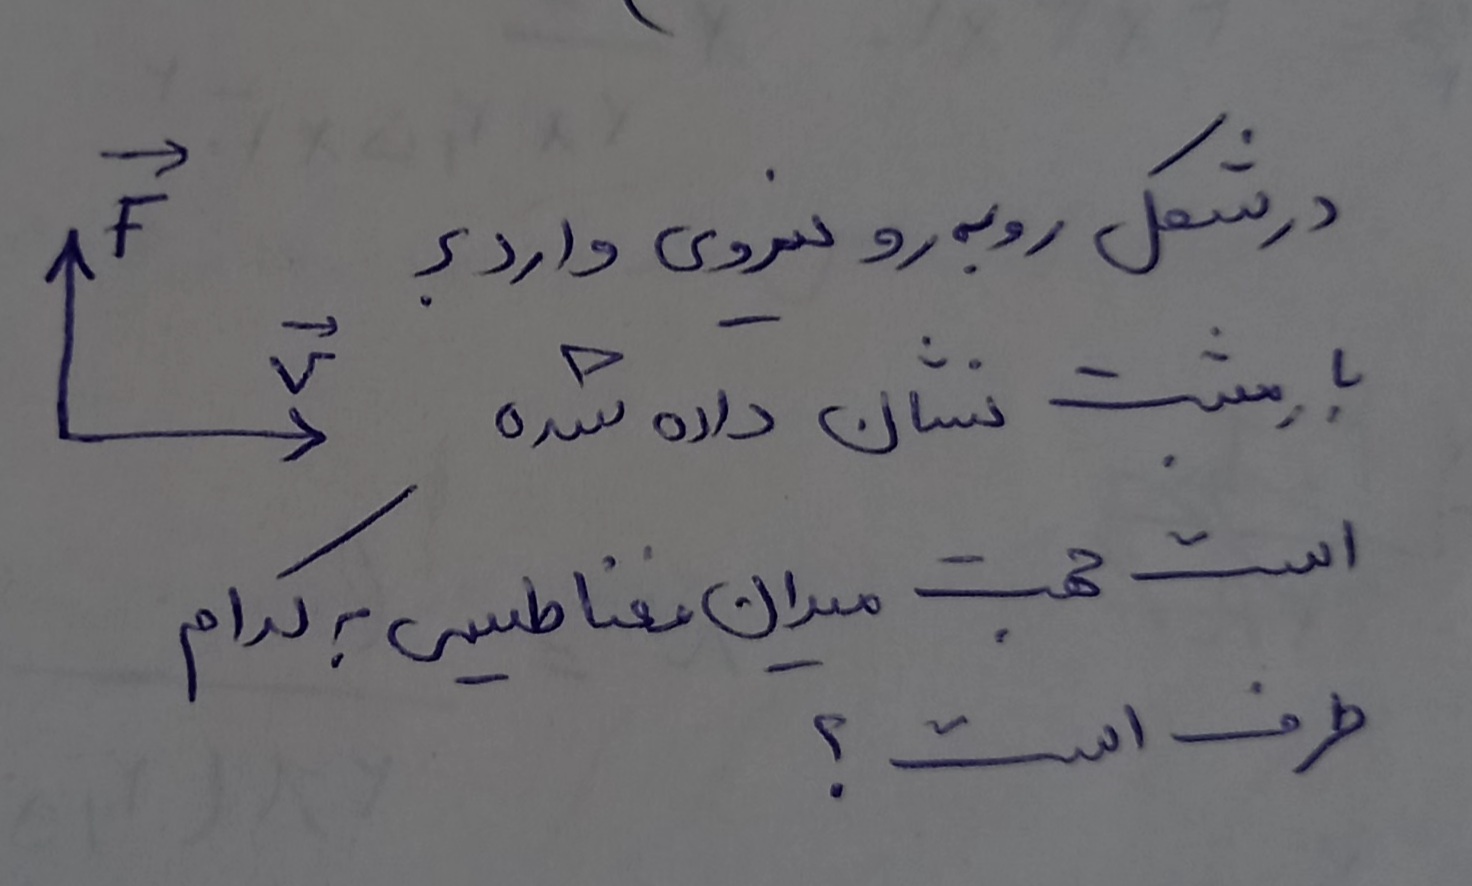 F
V
در شکل روبه رو نیروی وارد بر
بار مثبت نشان داده شده
است جهت میدان مغناطیسی به کدام
طرف است ؟